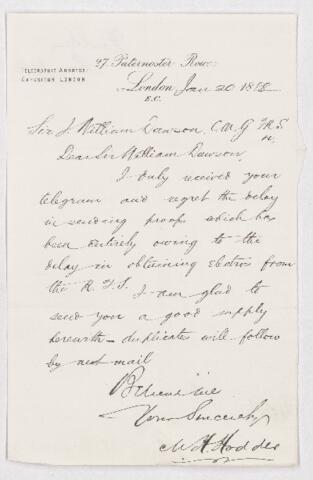 27. Paternoster Row.
TELEGRAPHIC ADDRESS
EXPOSITOR LONDON
London Jan 20 1888
E.C.
Sir J. William Dawson, C.M.G. F.R.S.
Dear Sir William Dawson,
I duly received your
telegram and regret the delay
in sending proofs which has
been entirely owing to the
delay in obtaining electros from
the R. T. S. I am glad to
send you a good supply
herewith – duplicates will follow
by next mail
Believe me
Yours Sincerely
M H Hodder